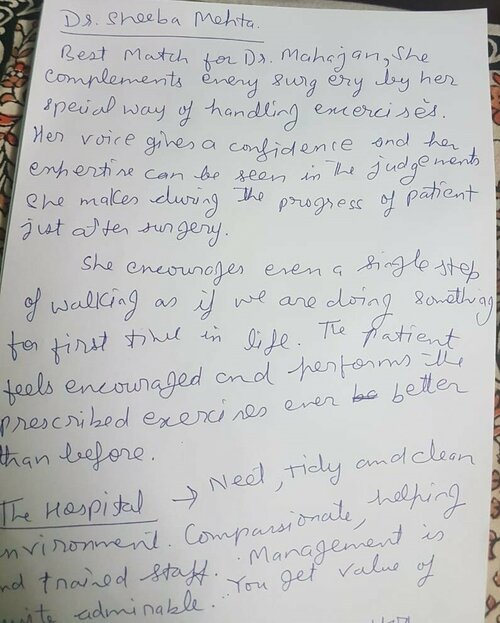 Dr. Sheeba Mehta.
Best Match for Dr. Mahajan, She
complements every surgery by her
special way of handling excercises.
Her voice gives a confidence and her
expertise can be seen in the judgements
she makes during the progress of patient
just after surgery.
She encourages even a single step
of walking as if we are doing something
for first time in life. The patient
feels encouraged and performs the
prescribed exercises ever be better
than before.
The Hospital → Neet, tidy and clean
nvironment. Compassionate, helping
nd trained staff. Management is
admirable. You get value of